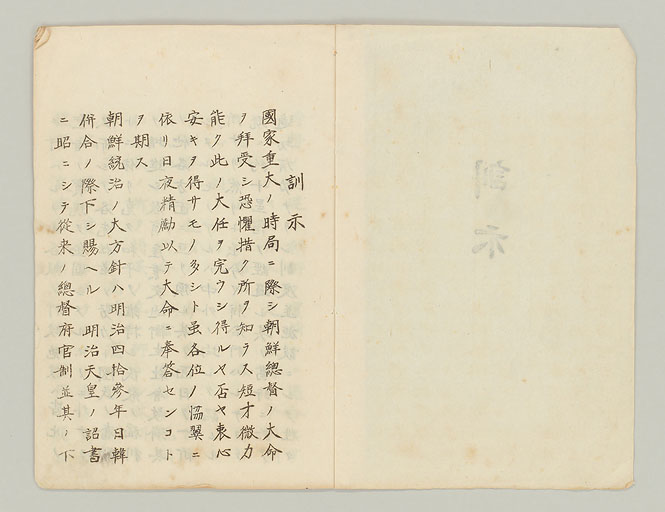 訓示
國家重大ノ時局ニ際シ朝鮮總督ノ大命
ヲ拜受シ恐懼措ク所ヲ知ラス短才微力
能ク此ノ大任ヲ完ウシ得ルヤ否ヤ衷心
安キヲ得サモノ多シト虽各位ノ恊翼ニ
依リ日夜精勵以テ大命ニ奉答センコト
ヲ期ス
朝鮮統治ノ大方針ハ明治四拾參年日韓
併合ノ際下シ賜ヘル 明治天皇ノ詔書
ニ昭ニシテ從来ノ總督府官制並其ノ下